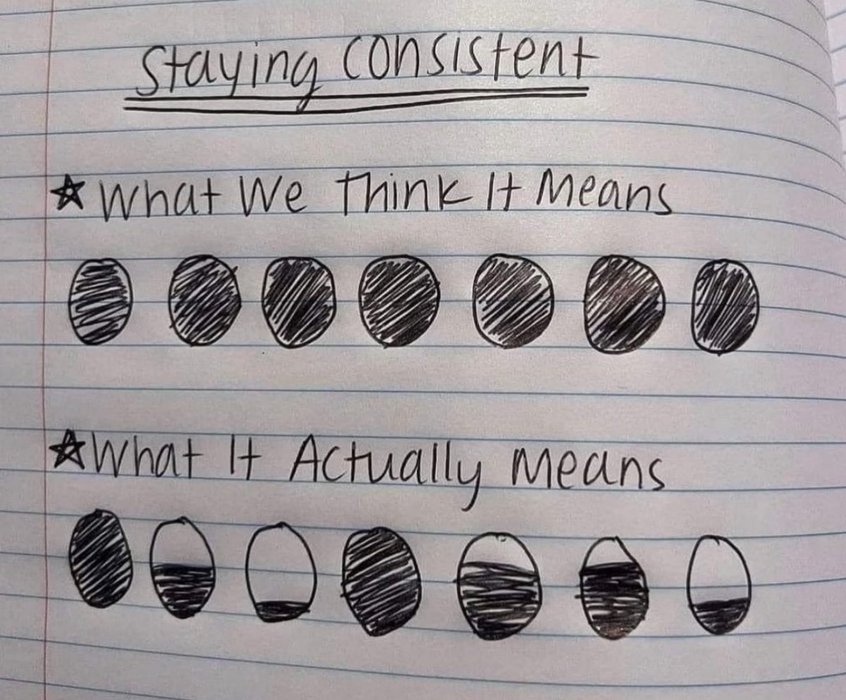 Staying Consistent
What We Think It Means
What It Actually Means